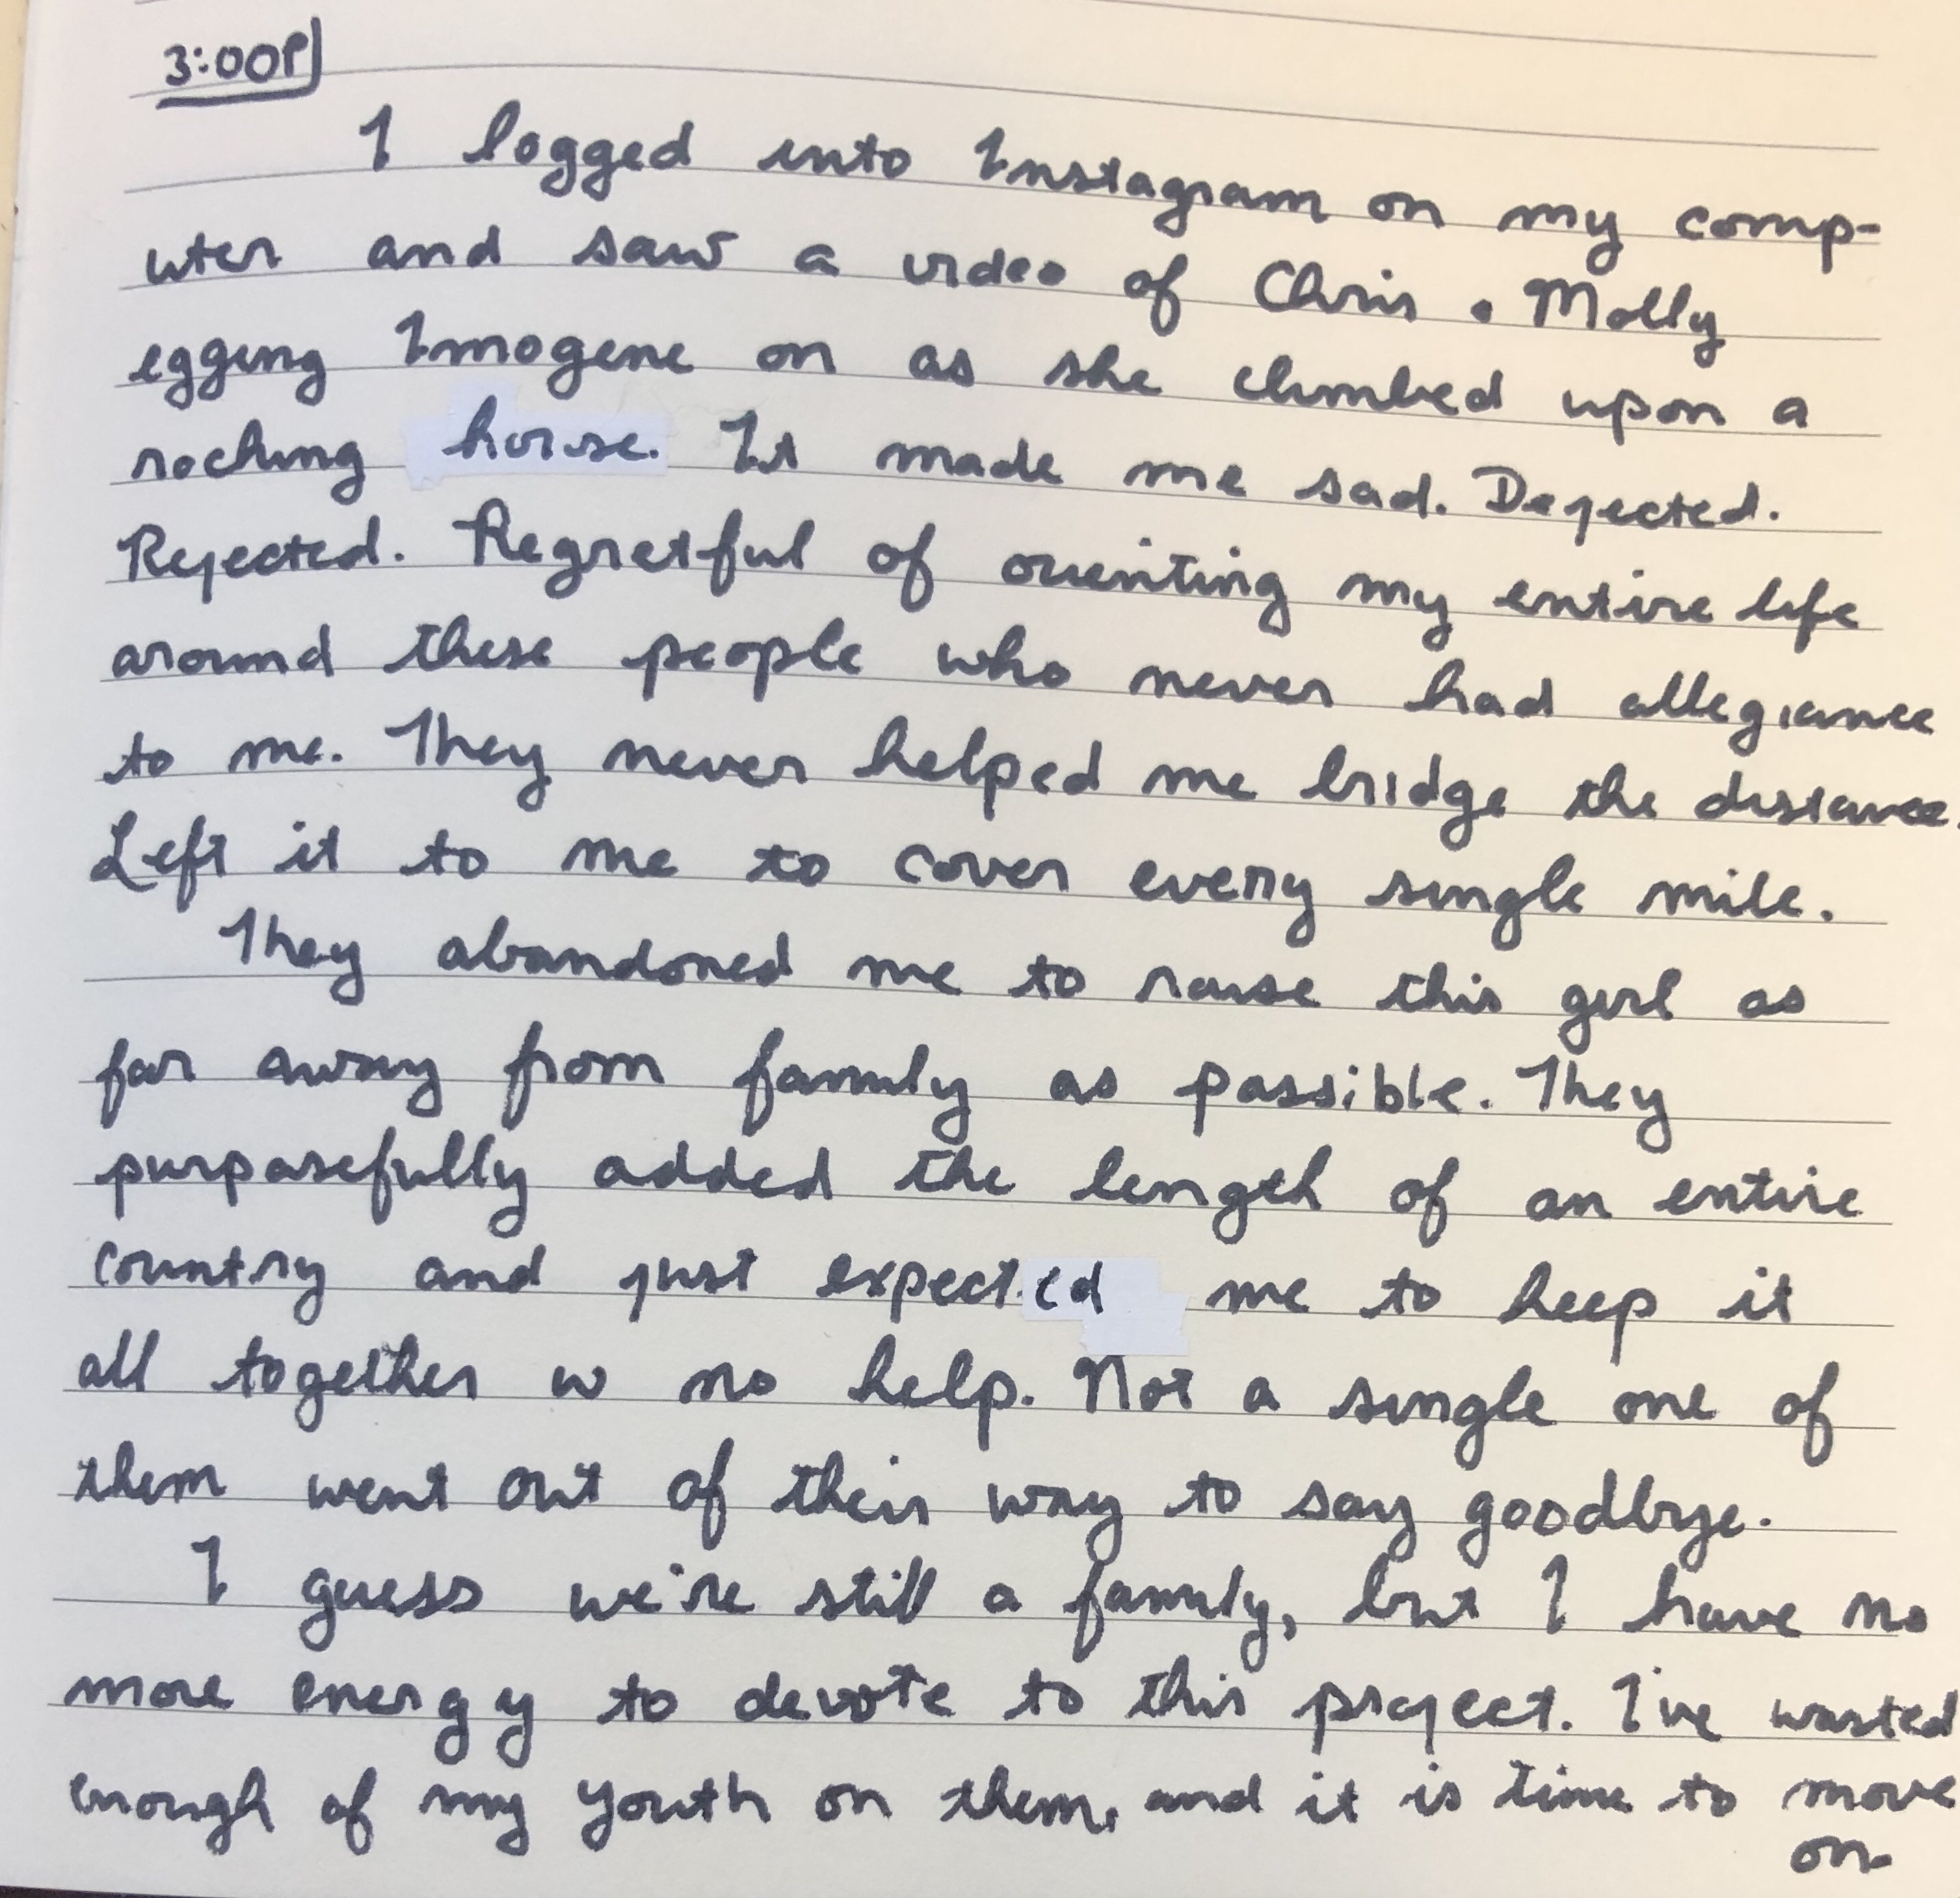 3:00P
I logged into Instagram on my comp-
uter and saw a video of Chris • Molly
egging Imogene on as she climbed upon a
rocking horse. It made me sad. Dejected.
Rejected. Regretful of orienting my entire life
around these people who never had allegiance
to me. They never helped me bridge the distance.
Left it to me to cover every single mile.
They abandoned me to raise this girl as
far away from family as possible. They
purposefully added the length of an entire
country and just expected me to keep it
all together w no help. Not a single one of
them went out of their way to say goodbye.
I guess we're still a family, but I have no
more energy to devote to this project. I've wasted
enough of my youth on them, and it is time to move
on.